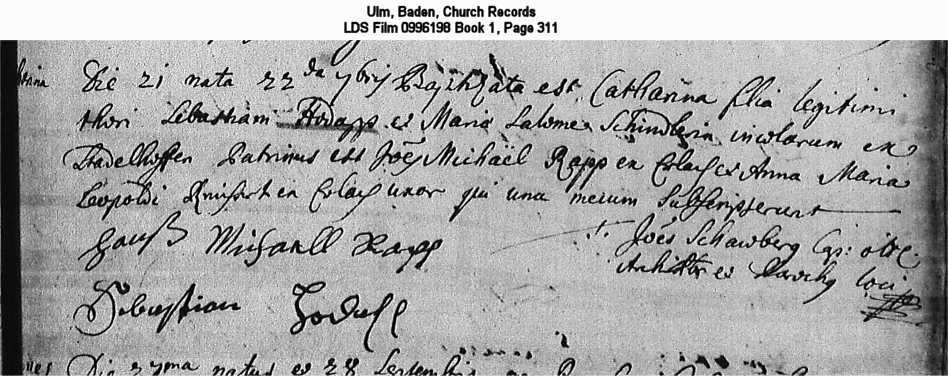 Ulm, Baden, Church Records
LDS Film 0996198 Book 1, Page 311
Die 21 nata 22da 7bris Baptizata est Catharina filia legitimi
thori Sebastiani Hodapp et Maria Salome Schindlerin incolarum ex
Stadelhoffen Patrinus est Joes Michaël Rapp ex Erlach et Anna Maria
Leopoldi ex Erlach uxor qui una mecum subscripserunt
Hanß Michaell Rapp
Joes Schawberg Cap:
et Parochus loci
Sebastian
Die natus et 28 Septembris